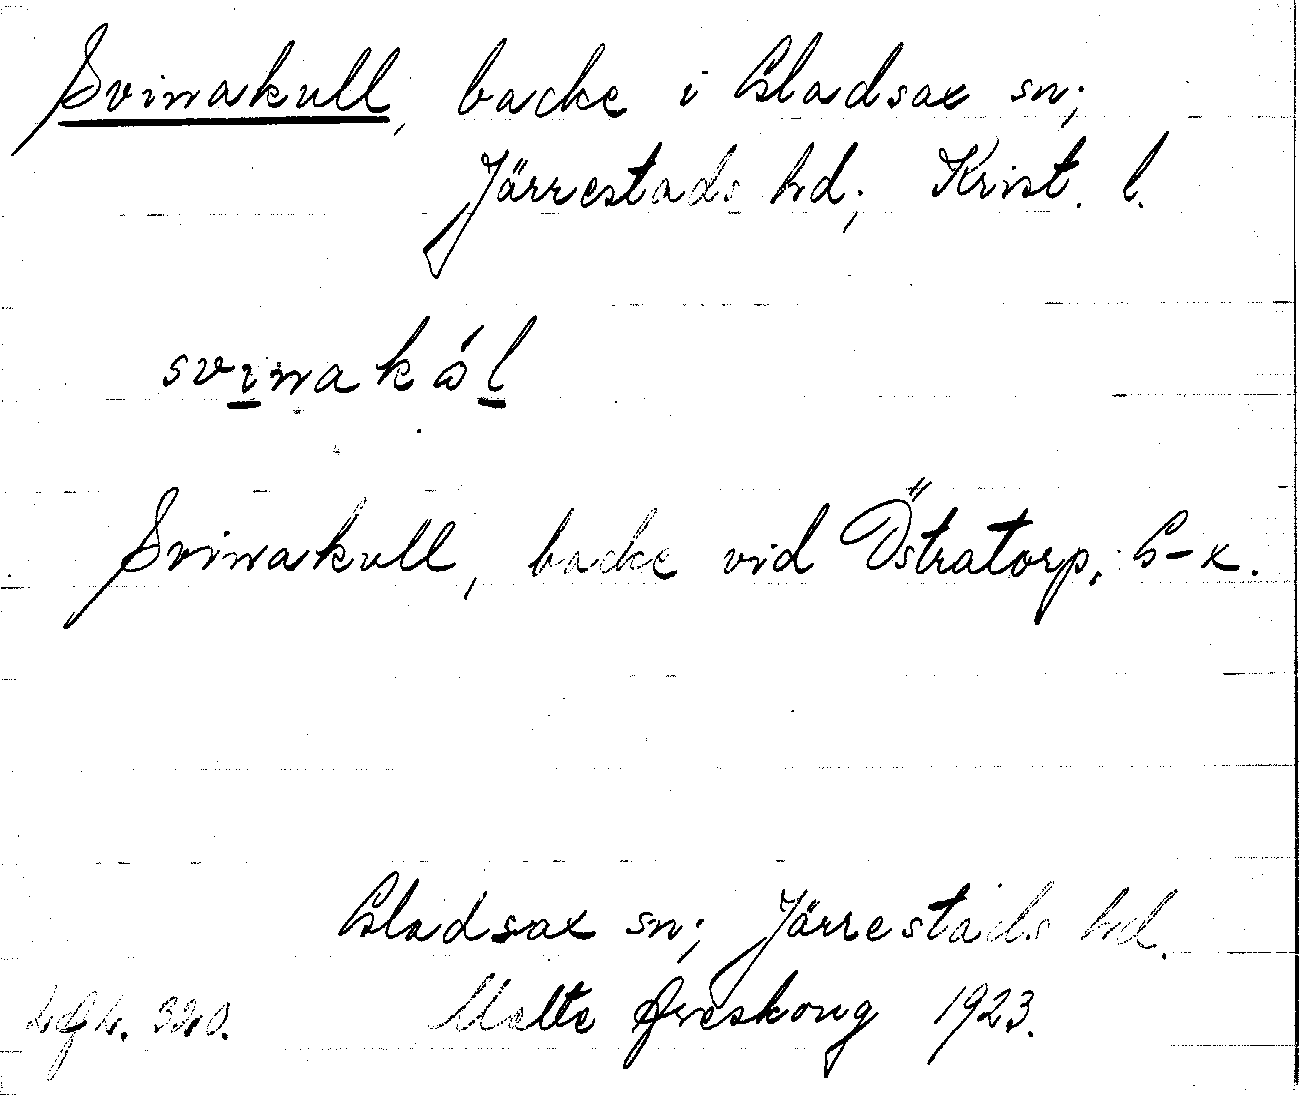 Svinakull, backe i Gladsax sn;
Järrestads hd; Krist. l.
svinakål
Svinakull, backe vid Östratorp, G-x.
Gladsax sn; Järrestads hd.
Malte Areskoug 1923.